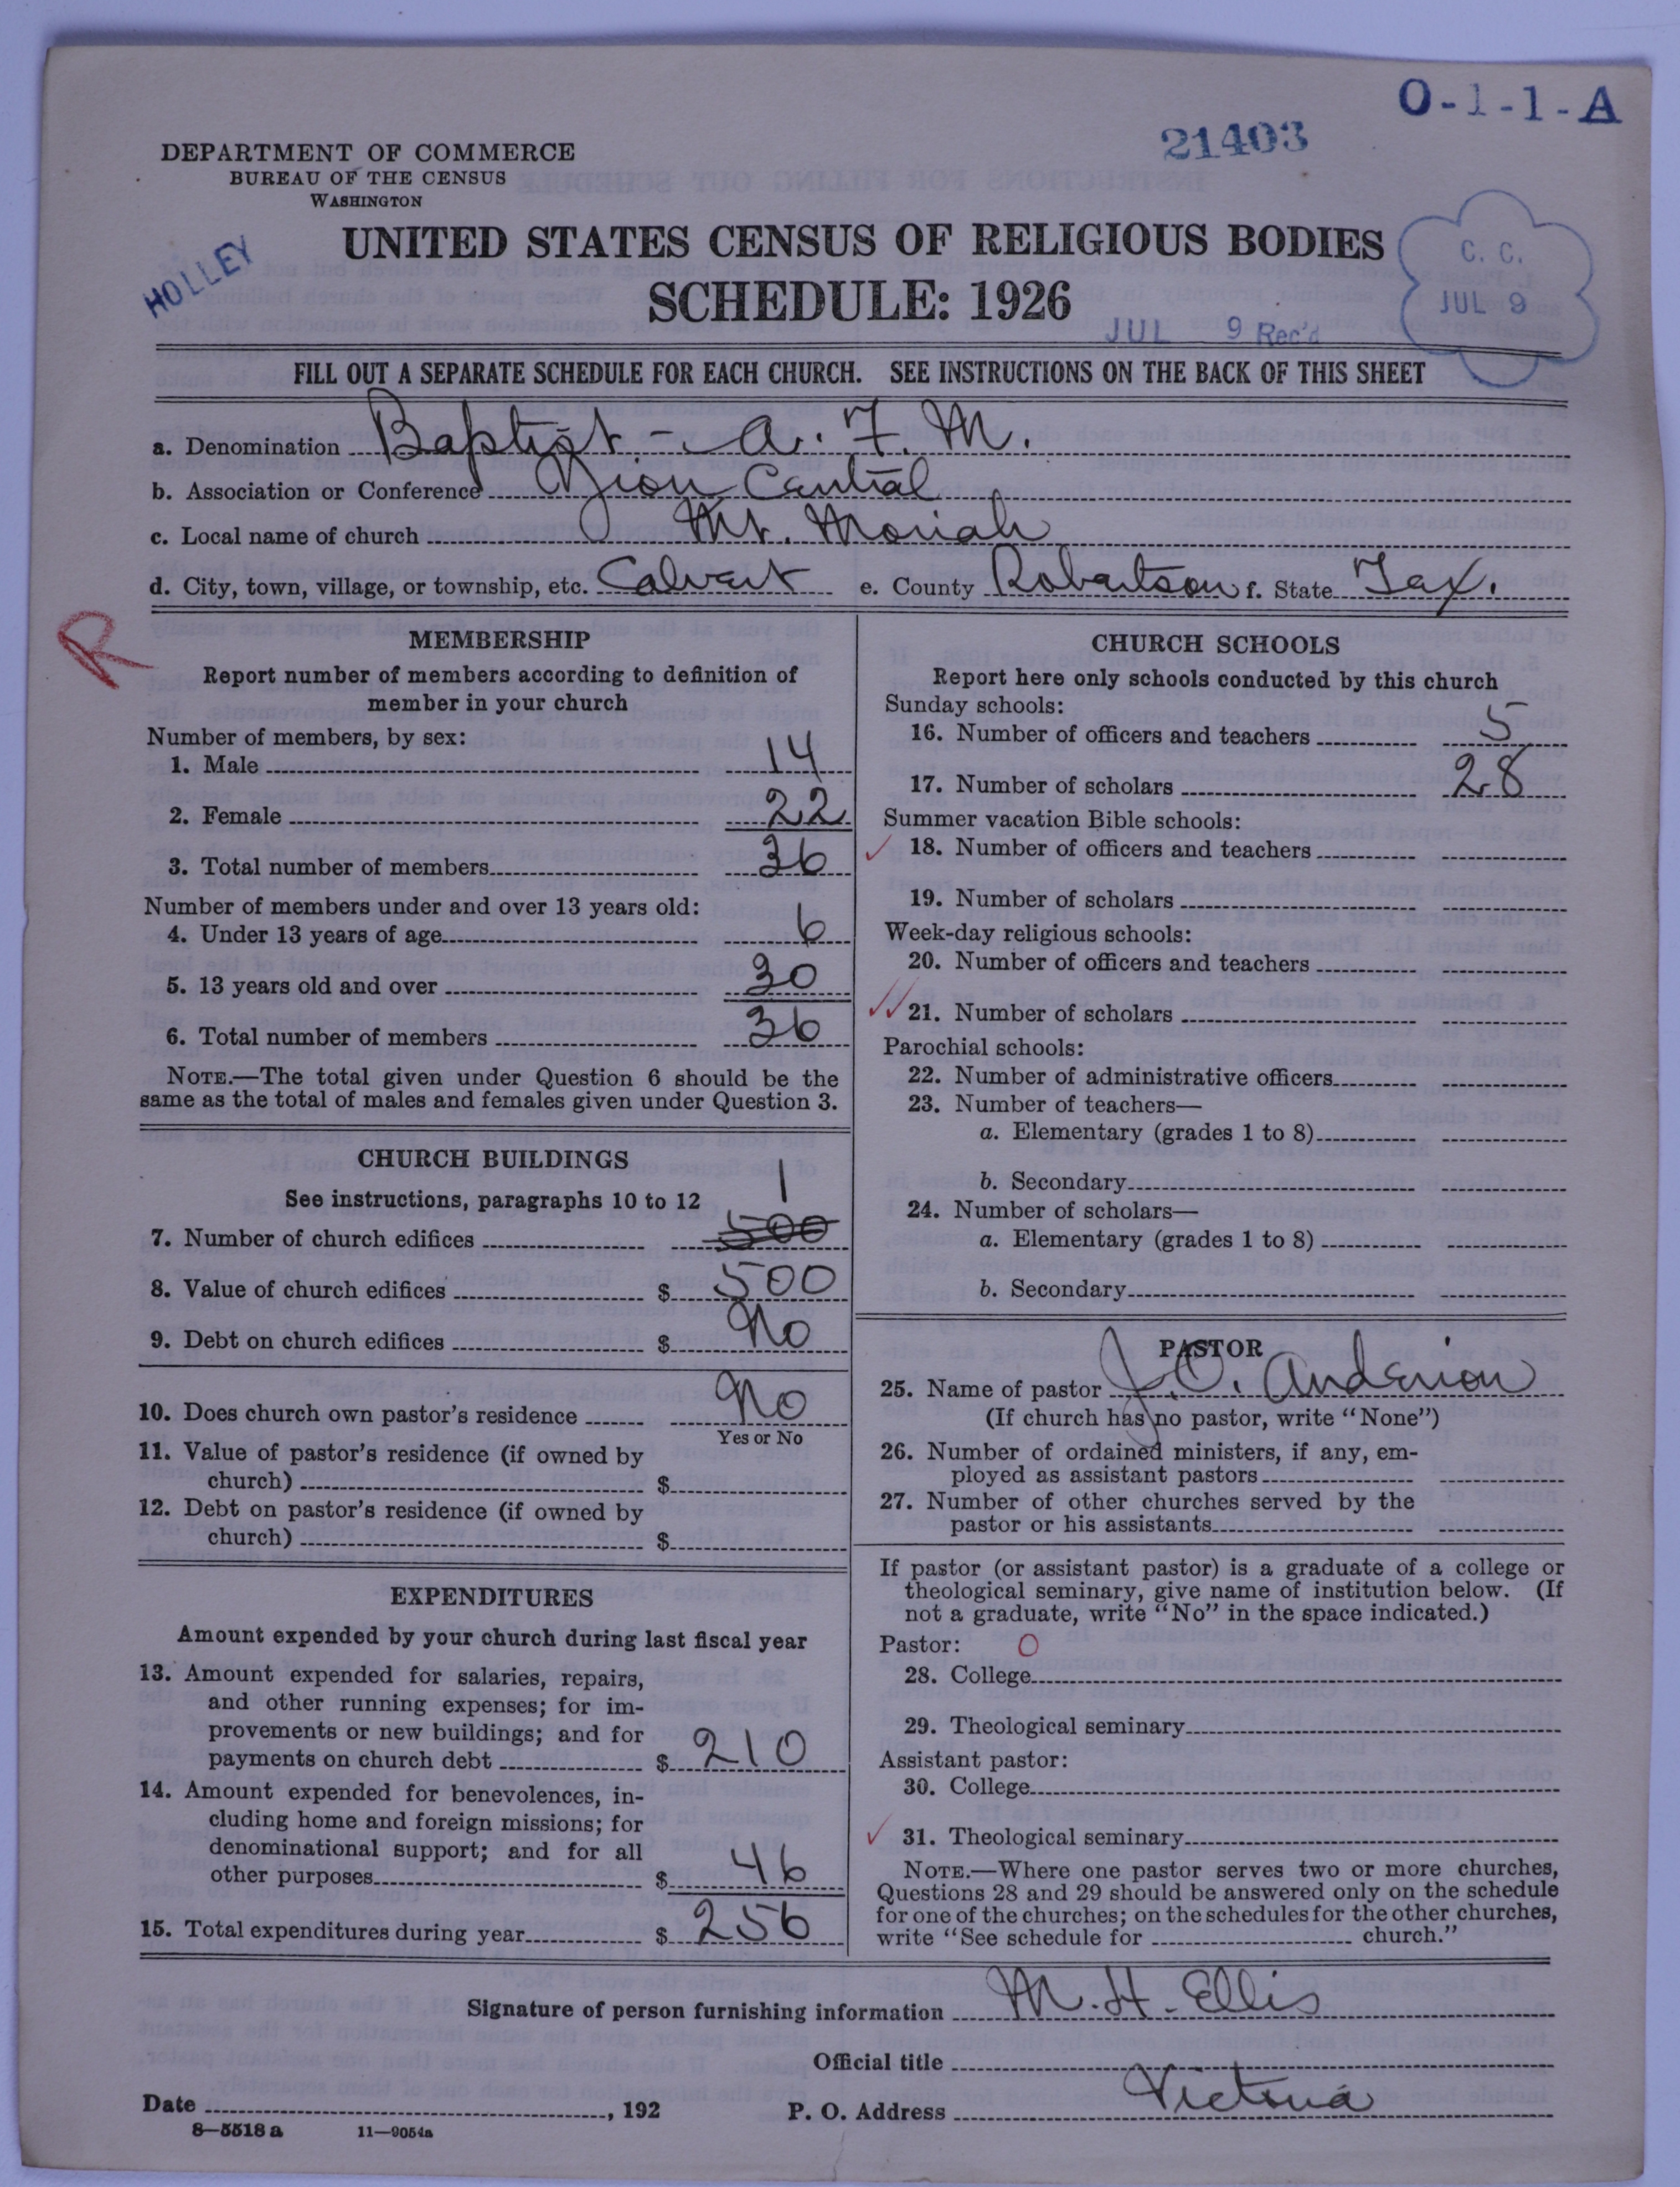 O-1-1-A
21403
DEPARTMENT OF COMMERCE
BUREAU OF THE CENSUS
WASHINGTON
HOLLEY
UNITED STATES CENSUS OF RELIGIOUS BODIES
SCHEDULE: 1926
C. C.
JUL 9
JUL 9 Rec'd
FILL OUT A SEPARATE SCHEDULE FOR EACH CHURCH. SEE INSTRUCTIONS ON THE BACK OF THIS SHEET
a. Denomination Baptist - A. F. M.
b. Association or Conference Zion Central
c. Local name of church Mt. Moriah
d. City, town, village, or township, etc. Calvert e. County Robertson f. State Tex.
R
MEMBERSHIP
Report number of members according to definition of
member in your church
Number of members, by sex:
1. Male 14
2. Female 22
3. Total number of members 36
Number of members under and over 13 years old:
4. Under 13 years of age 6
5. 13 years old and over 30
6. Total number of members 36
NOTE.—The total given under Question 6 should be the
same as the total of males and females given under Question 3.
CHURCH BUILDINGS
See instructions, paragraphs 10 to 12
1
7. Number of church edifices 500
8. Value of church edifices $ 500
9. Debt on church edifices $ No
10. Does church own pastor's residence No
Yes or No
11. Value of pastor's residence (if owned by
church) $
12. Debt on pastor's residence (if owned by
church) $
EXPENDITURES
Amount expended by your church during last fiscal year
13. Amount expended for salaries, repairs,
and other running expenses; for im-
provements or new buildings; and for
payments on church debt $ 210
14. Amount expended for benevolences, in-
cluding home and foreign missions; for
denominational support; and for all
other purposes $ 46
15. Total expenditures during year $ 256
CHURCH SCHOOLS
Report here only schools conducted by this church
Sunday schools:
16. Number of officers and teachers 5
17. Number of scholars 28
Summer vacation Bible schools:
18. Number of officers and teachers
19. Number of scholars
Week-day religious schools:
20. Number of officers and teachers
21. Number of scholars
Parochial schools:
22. Number of administrative officers
23. Number of teachers—
a. Elementary (grades 1 to 8)
b. Secondary
24. Number of scholars—
a. Elementary (grades 1 to 8)
b. Secondary
PASTOR
25. Name of pastor J. O. Anderson
(If church has no pastor, write "None")
26. Number of ordained ministers, if any, em-
ployed as assistant pastors
27. Number of other churches served by the
pastor or his assistants
If pastor (or assistant pastor) is a graduate of a college or
theological seminary, give name of institution below. (If
not a graduate, write "No" in the space indicated.)
Pastor: O
28. College
29. Theological seminary
Assistant pastor:
30. College
31. Theological seminary
NOTE.—Where one pastor serves two or more churches,
Questions 28 and 29 should be answered only on the schedule
for one of the churches; on the schedules for the other churches,
write "See schedule for church."
Signature of person furnishing information M. H. Ellis
Official title
Date , 192 P. O. Address Victoria
8—5518 a 11—9054a